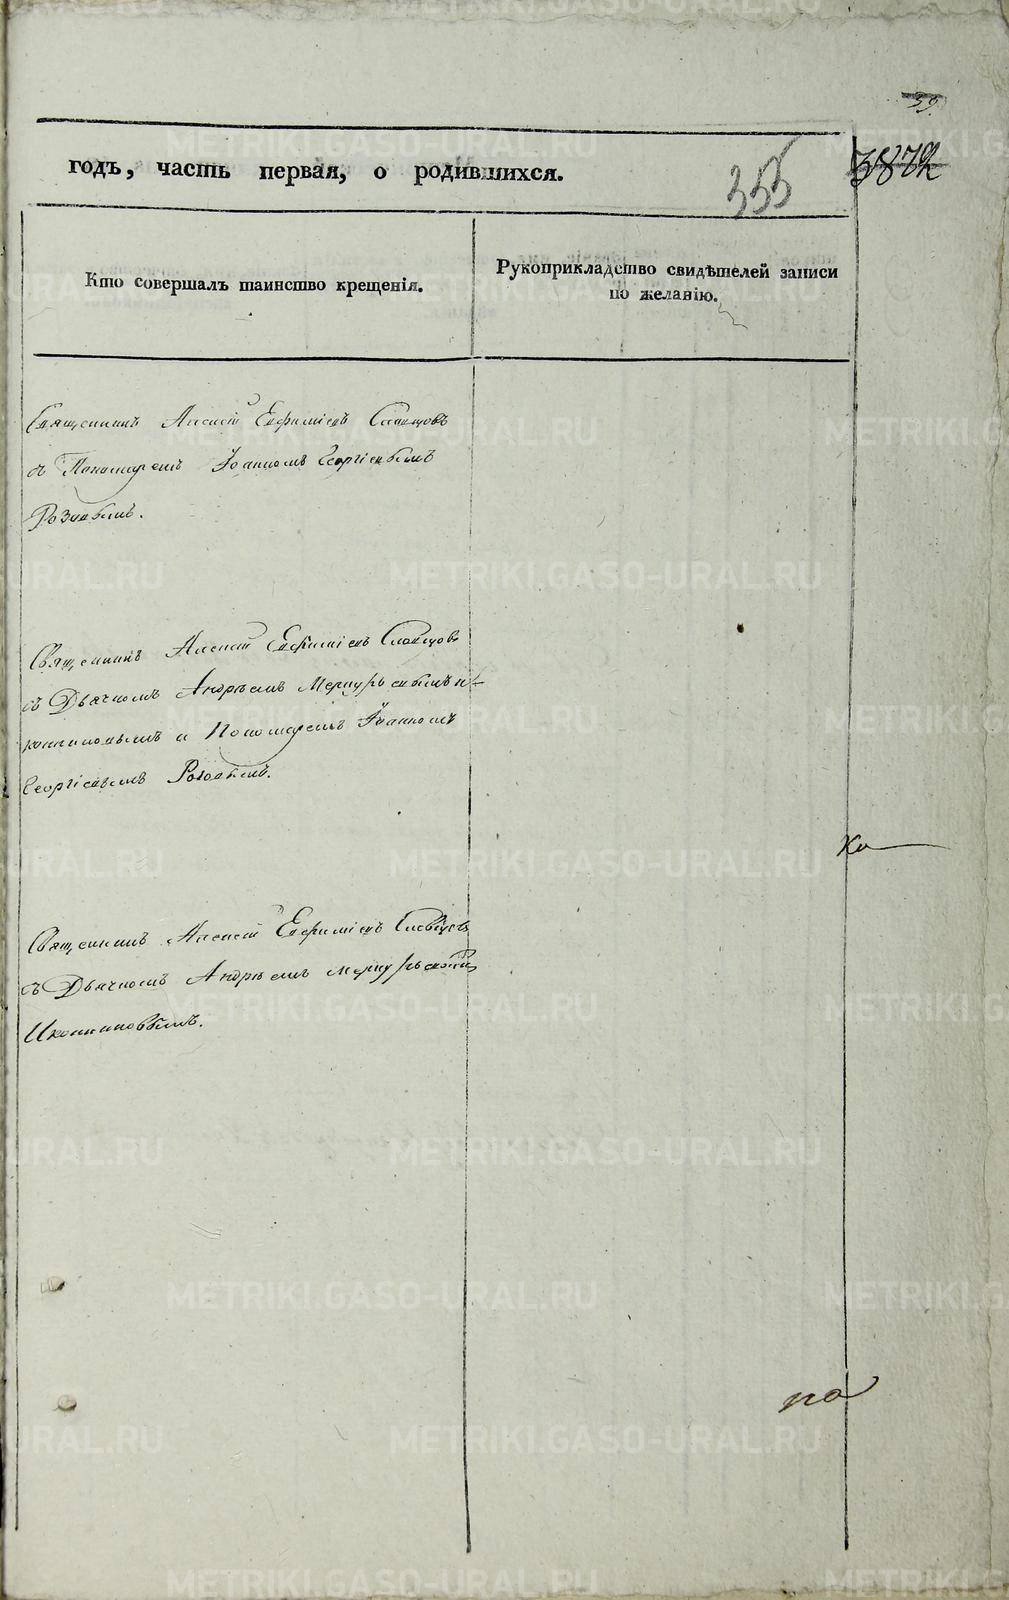 39.
годъ, часть первая, о родившихся.
355
3872
Кто совершалъ таинство крещенія.
Рукоприкладство свидѣтелей записи
по желанію.
Священникъ Алексій Евфиміевъ Словцовъ
съ Пономаремъ Іоанномъ Георгіевымъ
Розовымъ.
Священникъ Алексій Евфиміевъ Словцовъ
съ Дьячкомъ Андреемъ Меркурьевымъ И-
конниковымъ и Пономаремъ Іоанномъ
Георгіевымъ Розовымъ.
Ко
Священникъ Алексій Евфиміевъ Словцовъ
съ Дьячкомъ Андреемъ Меркурьевымъ
Иконниковымъ.
по
METRIKI.GASO-URAL.RU